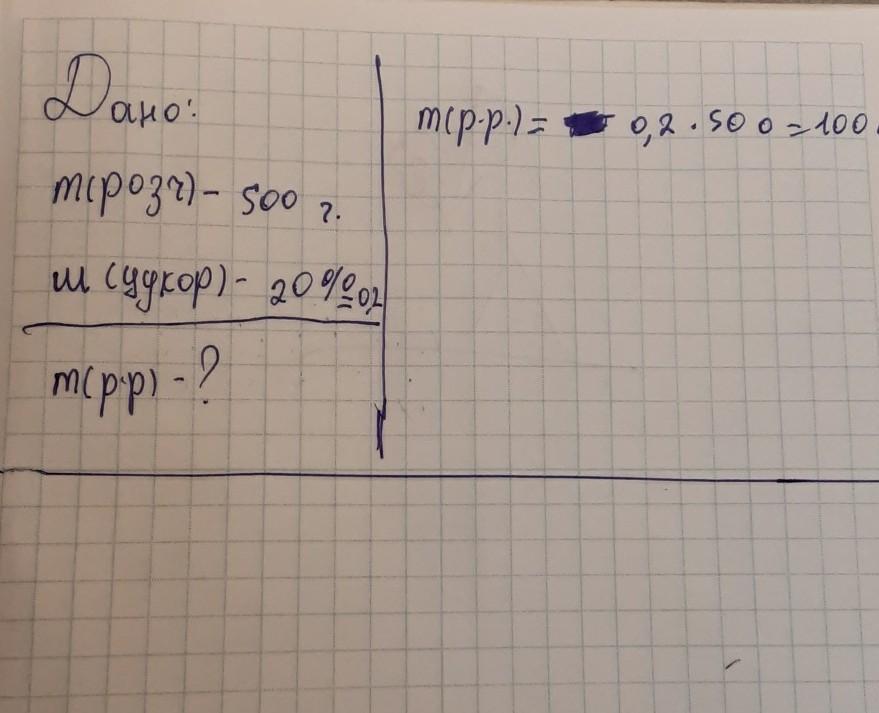 Дано:
m(розч) - 500 г.
ш (цукор) - 20% = 0,2
m(р.р) - ?
m(р.р.) = 0,2 · 500 = 100